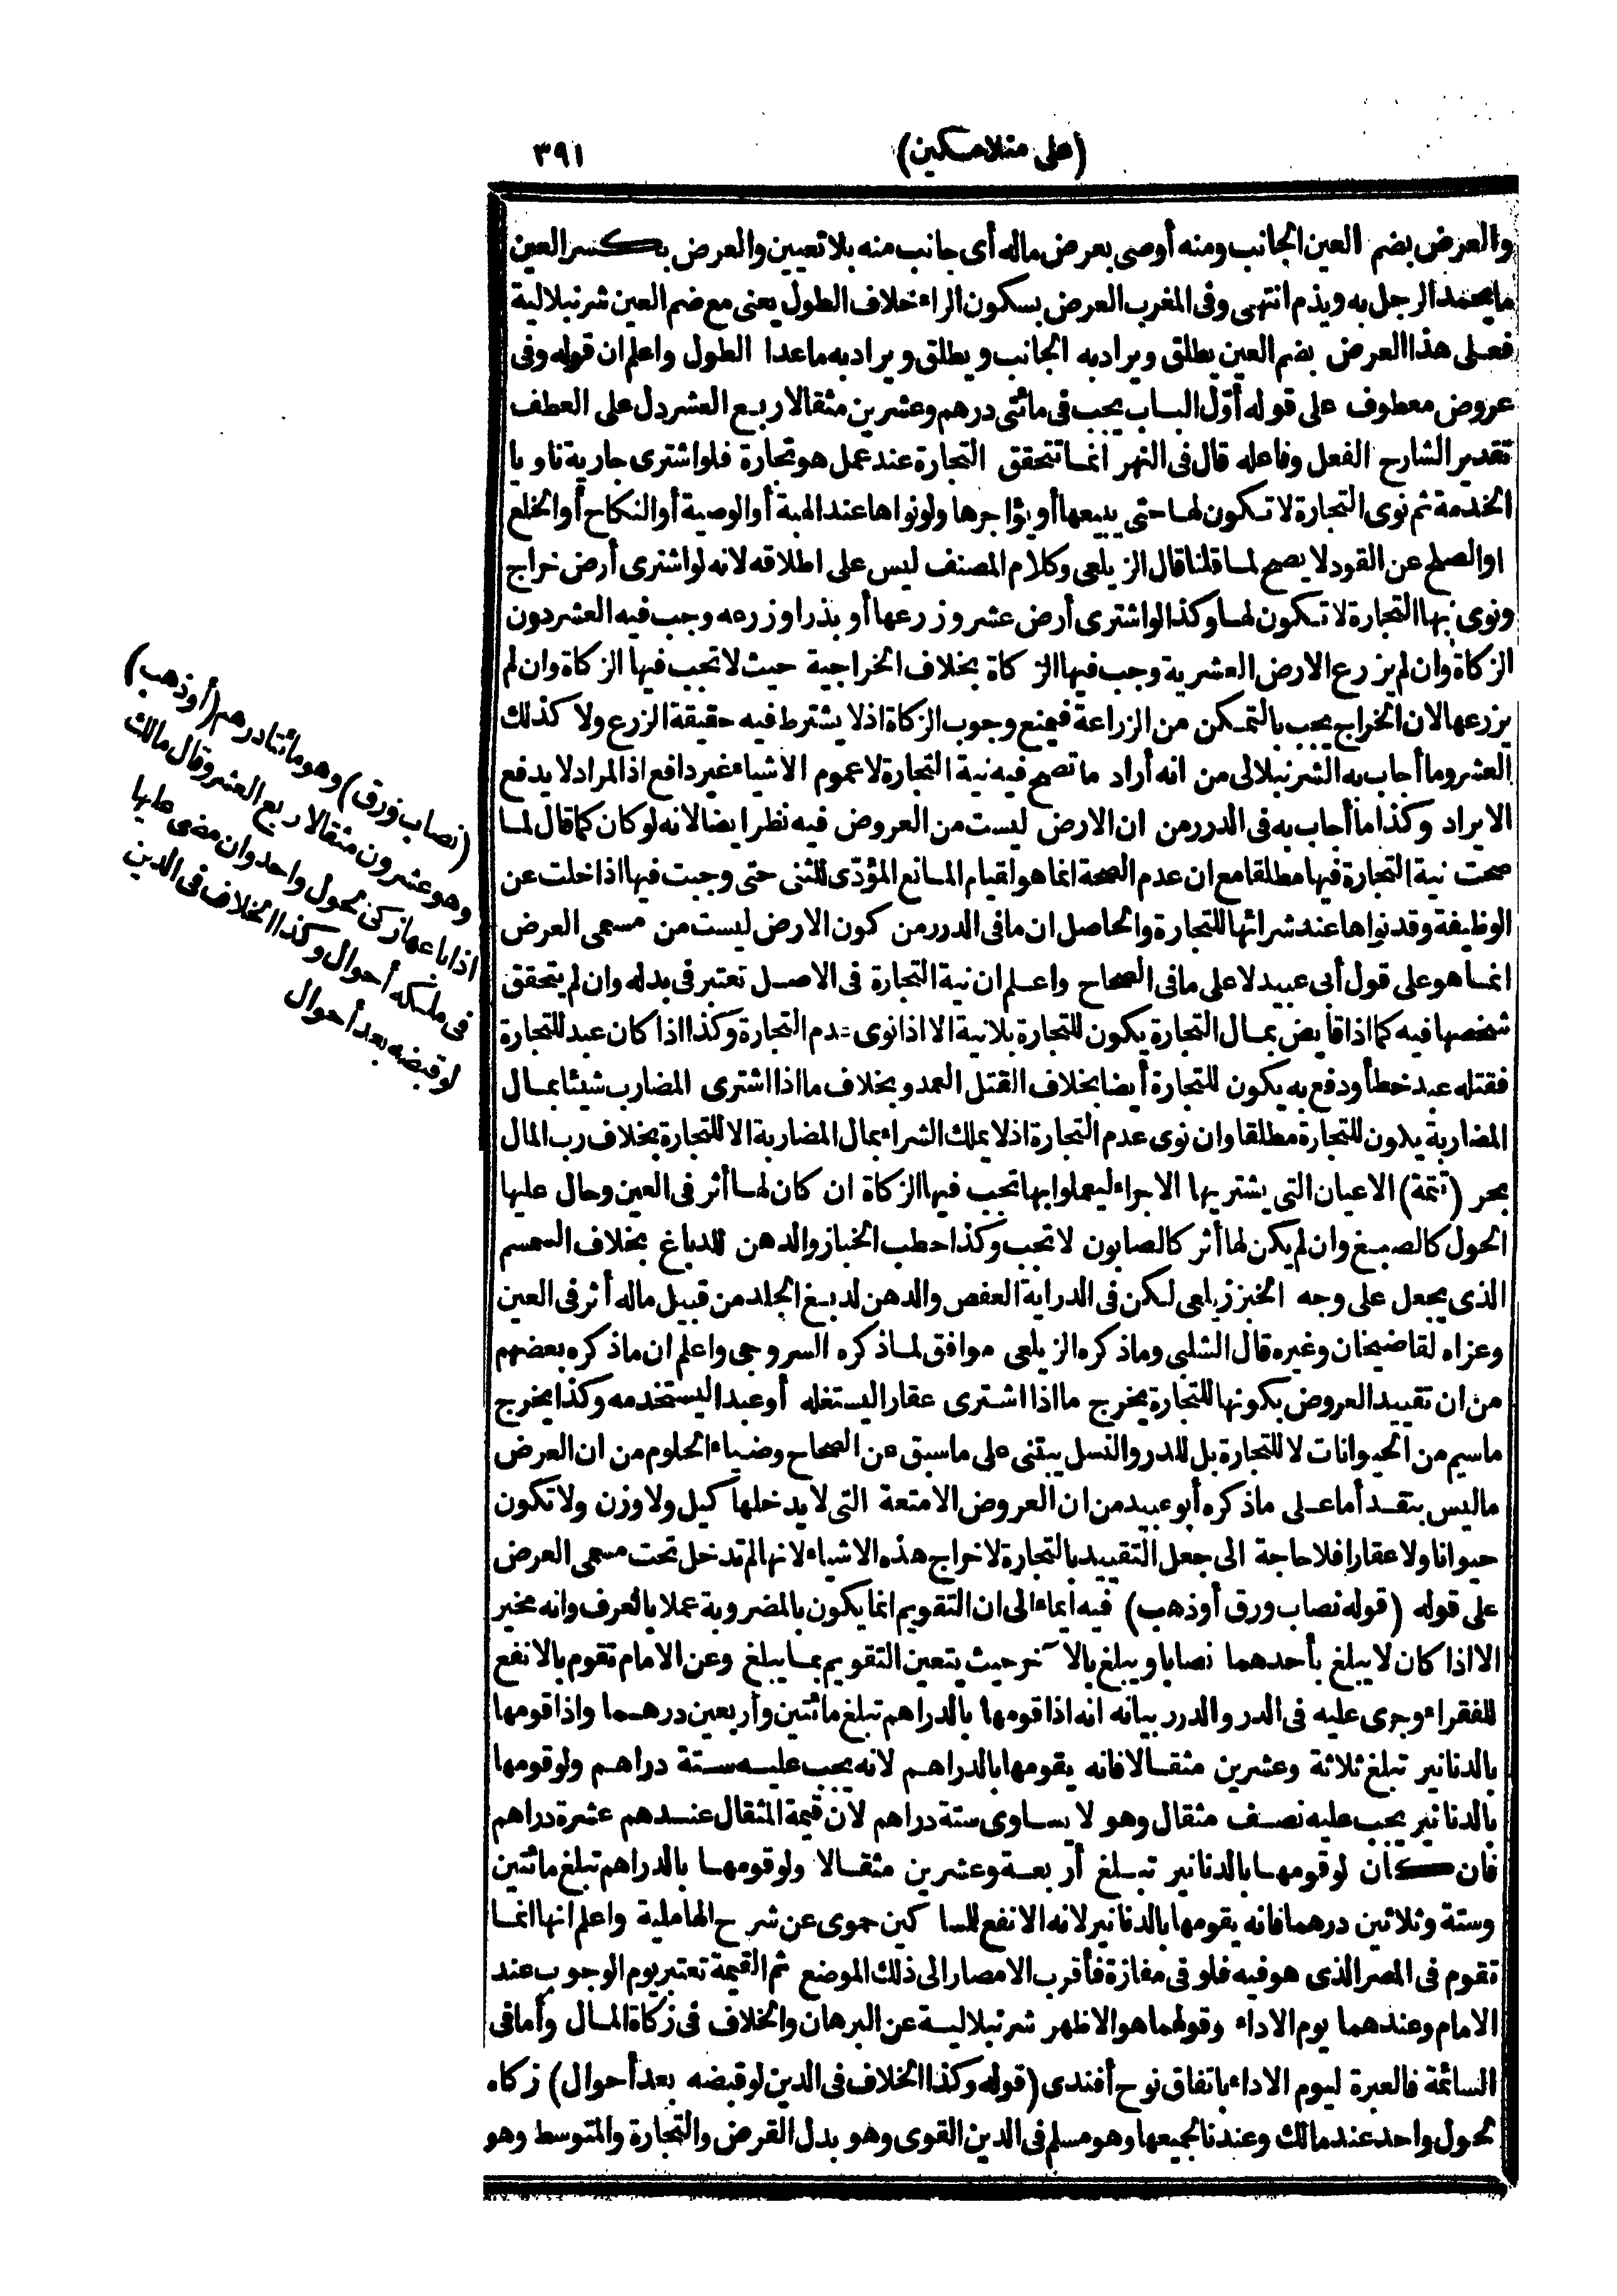 (على منلا مسكين) ٣٩١
والعرض بضم العين الجانب ومنه أوصى بعرض ماله أى جانب منه بلا تعيين والعرض بكسر العين
ما يحمد الرجل به ويذم انتهى وفى المغرب العرض بسكون الراء خلاف الطول يعنى مع ضم العين شرنبلالية
فعلى هذا العرض بضم العين يطلق ويراد به الجانب ويطلق ويراد به ماعدا الطول واعلم ان قوله وفى
عروض معطوف على قوله أوّل الباب يجب فى مائتى درهم وعشرين مثقالا ربع العشر دل على العطف
تقدير الشارح الفعل وفاعله قال فى النهر انما تتحقق التجارة عند عمل هو تجارة فلو اشترى جارية ناويا
الخدمة ثم نوى التجارة لا تكون لها حتى يبيعها أو يؤاجرها ولو نواها عند الهبة أو الوصية أو النكاح أو الخلع
او الصلح عن القود لا يصح لما قلنا قال الزيلعى وكلام المصنف ليس على اطلاقه لانه لو اشترى أرض خراج
ونوى بها التجارة لا تكون لها وكذا لو اشترى أرض عشر وزرعها أو بذرا وزرعه وجب فيه العشر دون
الزكاة وان لم يزرع الارض العشرية وجب فيها الزكاة بخلاف الخراجية حيث لا تجب فيها الزكاة وان لم
يزرعها لان الخراج يجب بالتمكن من الزراعة فيمنع وجوب الزكاة اذ لا يشترط فيه حقيقة الزرع ولا كذلك
العشر وما أجاب به الشرنبلالى من انه أراد ما تصح فيه نية التجارة لا عموم الاشياء غير دافع اذ المراد لا يدفع
الايراد وكذا ما أجاب به فى الدرر من ان الارض ليست من العروض فيه نظر ايضا لانه لو كان كما قال لما
صحت نية التجارة فيها مطلقا مع ان عدم الصحة انما هو لقيام المانع المؤدّى للثنى حتى وجبت فيها اذا خلت عن
الوظيفة وقد نواها عند شرائها للتجارة والحاصل ان ما فى الدرر من كون الارض ليست من مسمى العرض
انما هو على قول أبى عبيد لا على ما فى الصحاح واعلم ان نية التجارة فى الاصل تعتبر فى بدله وان لم يتحقق
شخصها فيه كما اذا قايض بمال التجارة يكون للتجارة بلانية الا اذا نوى عدم التجارة وكذا اذا كان عبد للتجارة
فقتله عبد خطأ ودفع به يكون للتجارة أيضا بخلاف القتل العمد وبخلاف ما اذا اشترى المضارب شيئا بمال
المضاربة يكون للتجارة مطلقا وان نوى عدم التجارة اذ لا يملك الشراء بمال المضاربة الا للتجارة بخلاف رب المال
بحر (تتمة) الاعيان التى يشتريها الاجراء ليعملوا بها تجب فيها الزكاة ان كان لها أثر فى العين وحال عليها
الحول كالصبغ وان لم يكن لها أثر كالصابون لا تجب وكذا حطب الخباز والدهن للدباغ بخلاف السمسم
الذى يجعل على وجه الخبز زيلعى لكن فى الدراية العفص والدهن لدبغ الجلد من قبيل ماله أثر فى العين
وعزاه لقاضيخان وغيره قال الشلبى وما ذكره الزيلعى موافق لما ذكره السروجى واعلم ان ما ذكره بعضهم
من ان تقييد العروض بكونها للتجارة يخرج ما اذا اشترى عقارا ليستغله أو عبدا ليستخدمه وكذا يخرج
ما سيم من الحيوانات لا للتجارة بل للدر والنسل يبتنى على ما سبق عن الصحاح وضياء الحلوم من ان العرض
ما ليس بنقد أما على ما ذكره أبو عبيد من ان العروض الامتعة التى لا يدخلها كيل ولا وزن ولا تكون
حيوانا ولا عقارا فلا حاجة الى جعل التقييد بالتجارة لاخراج هذه الاشياء لانها لم تدخل تحت مسمى العرض
على قوله (قوله نصاب ورق أو ذهب) فيه ايماء الى ان التقويم انما يكون بالمضروبة عملا بالعرف وانه مخير
الا اذا كان لا يبلغ بأحدهما نصابا ويبلغ بالآخر حيث يتعين التقويم بما يبلغ وعن الامام تقوم بالانفع
للفقراء وجرى عليه فى الدر والدرر بيانه انه اذا قومها بالدراهم تبلغ مائتين وأربعين درهما واذا قومها
بالدنانير تبلغ ثلاثة وعشرين مثقالا فانه يقومها بالدراهم لانه يجب عليه ستة دراهم ولو قومها
بالدنانير يجب عليه نصف مثقال وهو لا يساوى ستة دراهم لان قيمة المثقال عندهم عشرة دراهم
فان كان لو قومها بالدنانير تبلغ أربعة وعشرين مثقالا ولو قومها بالدراهم تبلغ مائتين
وستة وثلاثين درهما فانه يقومها بالدنانير لانه الانفع للمساكين حموى عن شرح الهاملية واعلم انها انما
تقوم فى المصر الذى هو فيه فلو فى مفازة فأقرب الامصار الى ذلك الموضع ثم القيمة تعتبر يوم الوجوب عند
الامام وعندهما يوم الاداء وقولهما هو الاظهر شرنبلالية عن البرهان والخلاف فى زكاة المال وأما فى
السائمة فالعبرة ليوم الاداء باتفاق نوح أفندى (قوله وكذا الخلاف فى الدين لو قبضه بعد أحوال) زكاه
لحول واحد عند مالك وعندنا لجميعها وهو مسلم فى الدين القوى وهو بدل القرض والتجارة والمتوسط وهو
(نصاب ورق) وهو مائتا درهم (أو ذهب)
وهو عشرون مثقالا ربع العشر وقال مالك
اذا باعها زكى لحول واحد وان مضى عليها
فى ملكه أحوال وكذا الخلاف فى الدين
لو قبضه بعد أحوال